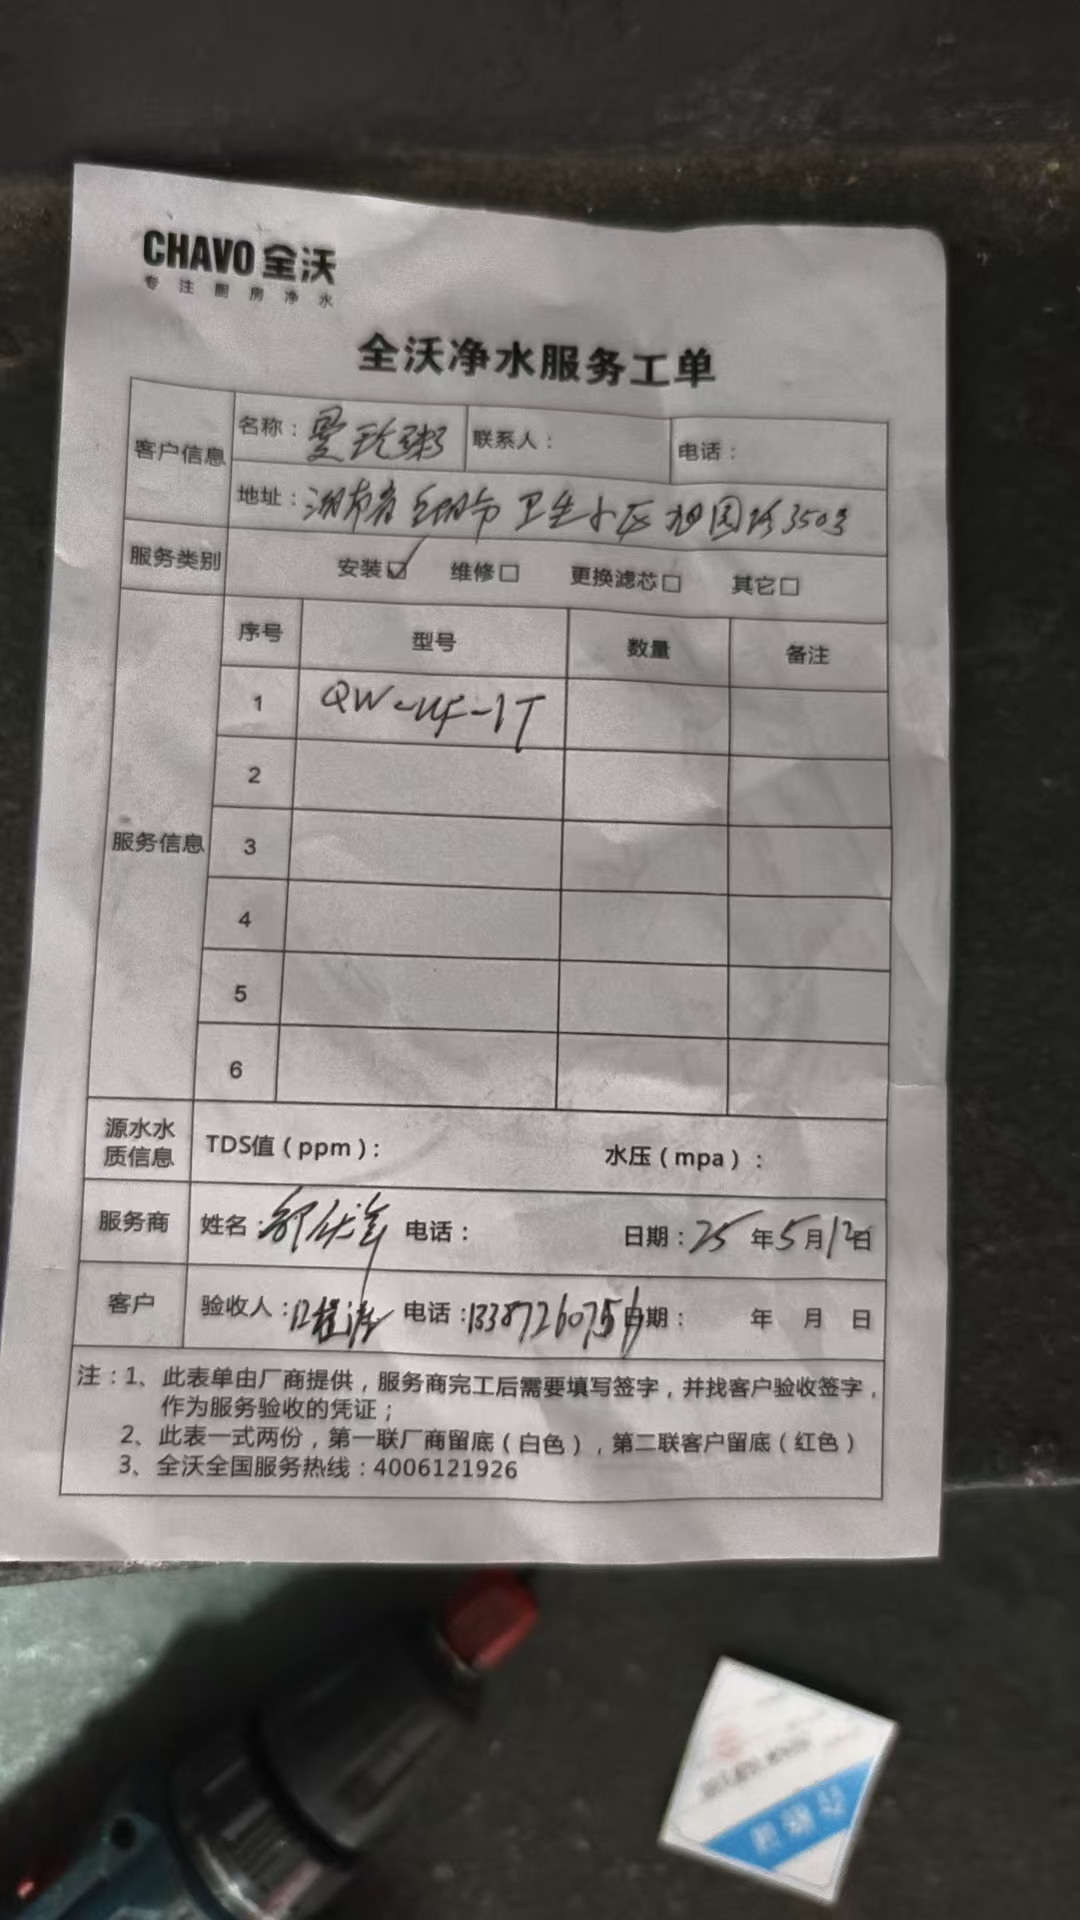 CHAVO 全沃
专注厨房净水
全沃净水服务工单
客户信息 名称: 曼玲粥 联系人: 电话:
地址: 湖南省 市卫生小区 园路350号
服务类别 安装☑ 维修□ 更换滤芯□ 其它□
服务信息 序号 型号 数量 备注
1 QW-UF-1T
2
3
4
5
6
源水水质信息 TDS值(ppm): 水压(mpa):
服务商 姓名: 电话: 日期:25年5月12日
客户 验收人: 电话:13387260756 日期: 年 月 日
注:1、此表单由厂商提供,服务商完工后需要填写签字,并找客户验收签字,
作为服务验收的凭证;
2、此表一式两份,第一联厂商留底(白色),第二联客户留底(红色)
3、全沃全国服务热线:4006121926